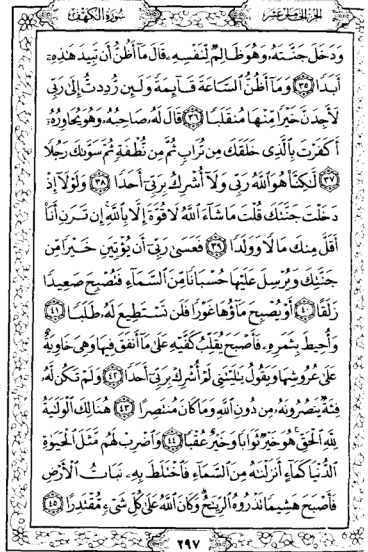 الجزء الخامس عشر سورة الكهف
وَدَخَلَ جَنَّتَهُۥ وَهُوَ ظَالِمٌ لِّنَفْسِهِۦ قَالَ مَآ أَظُنُّ أَن تَبِيدَ هَٰذِهِۦٓ
أَبَدًا ۝٣٥ وَمَآ أَظُنُّ ٱلسَّاعَةَ قَآئِمَةً وَلَئِن رُّدِدتُّ إِلَىٰ رَبِّى
لَأَجِدَنَّ خَيْرًا مِّنْهَا مُنقَلَبًا ۝٣٦ قَالَ لَهُۥ صَاحِبُهُۥ وَهُوَ يُحَاوِرُهُۥٓ
أَكَفَرْتَ بِٱلَّذِى خَلَقَكَ مِن تُرَابٍ ثُمَّ مِن نُّطْفَةٍ ثُمَّ سَوَّىٰكَ رَجُلًا
۝٣٧ لَّٰكِنَّا۠ هُوَ ٱللَّهُ رَبِّى وَلَآ أُشْرِكُ بِرَبِّىٓ أَحَدًا ۝٣٨ وَلَوْلَآ إِذْ
دَخَلْتَ جَنَّتَكَ قُلْتَ مَا شَآءَ ٱللَّهُ لَا قُوَّةَ إِلَّا بِٱللَّهِ إِن تَرَنِ أَنَا۠
أَقَلَّ مِنكَ مَالًا وَوَلَدًا ۝٣٩ فَعَسَىٰ رَبِّىٓ أَن يُؤْتِيَنِ خَيْرًا مِّن
جَنَّتِكَ وَيُرْسِلَ عَلَيْهَا حُسْبَانًا مِّنَ ٱلسَّمَآءِ فَتُصْبِحَ صَعِيدًا
زَلَقًا ۝٤٠ أَوْ يُصْبِحَ مَآؤُهَا غَوْرًا فَلَن تَسْتَطِيعَ لَهُۥ طَلَبًا ۝٤١
وَأُحِيطَ بِثَمَرِهِۦ فَأَصْبَحَ يُقَلِّبُ كَفَّيْهِ عَلَىٰ مَآ أَنفَقَ فِيهَا وَهِىَ خَاوِيَةٌ
عَلَىٰ عُرُوشِهَا وَيَقُولُ يَٰلَيْتَنِى لَمْ أُشْرِكْ بِرَبِّىٓ أَحَدًا ۝٤٢ وَلَمْ تَكُن لَّهُۥ
فِئَةٌ يَنصُرُونَهُۥ مِن دُونِ ٱللَّهِ وَمَا كَانَ مُنتَصِرًا ۝٤٣ هُنَالِكَ ٱلْوَلَٰيَةُ
لِلَّهِ ٱلْحَقِّ هُوَ خَيْرٌ ثَوَابًا وَخَيْرٌ عُقْبًا ۝٤٤ وَٱضْرِبْ لَهُم مَّثَلَ ٱلْحَيَوٰةِ
ٱلدُّنْيَا كَمَآءٍ أَنزَلْنَٰهُ مِنَ ٱلسَّمَآءِ فَٱخْتَلَطَ بِهِۦ نَبَاتُ ٱلْأَرْضِ
فَأَصْبَحَ هَشِيمًا تَذْرُوهُ ٱلرِّيَٰحُ وَكَانَ ٱللَّهُ عَلَىٰ كُلِّ شَىْءٍ مُّقْتَدِرًا ۝٤٥
٢٩٧